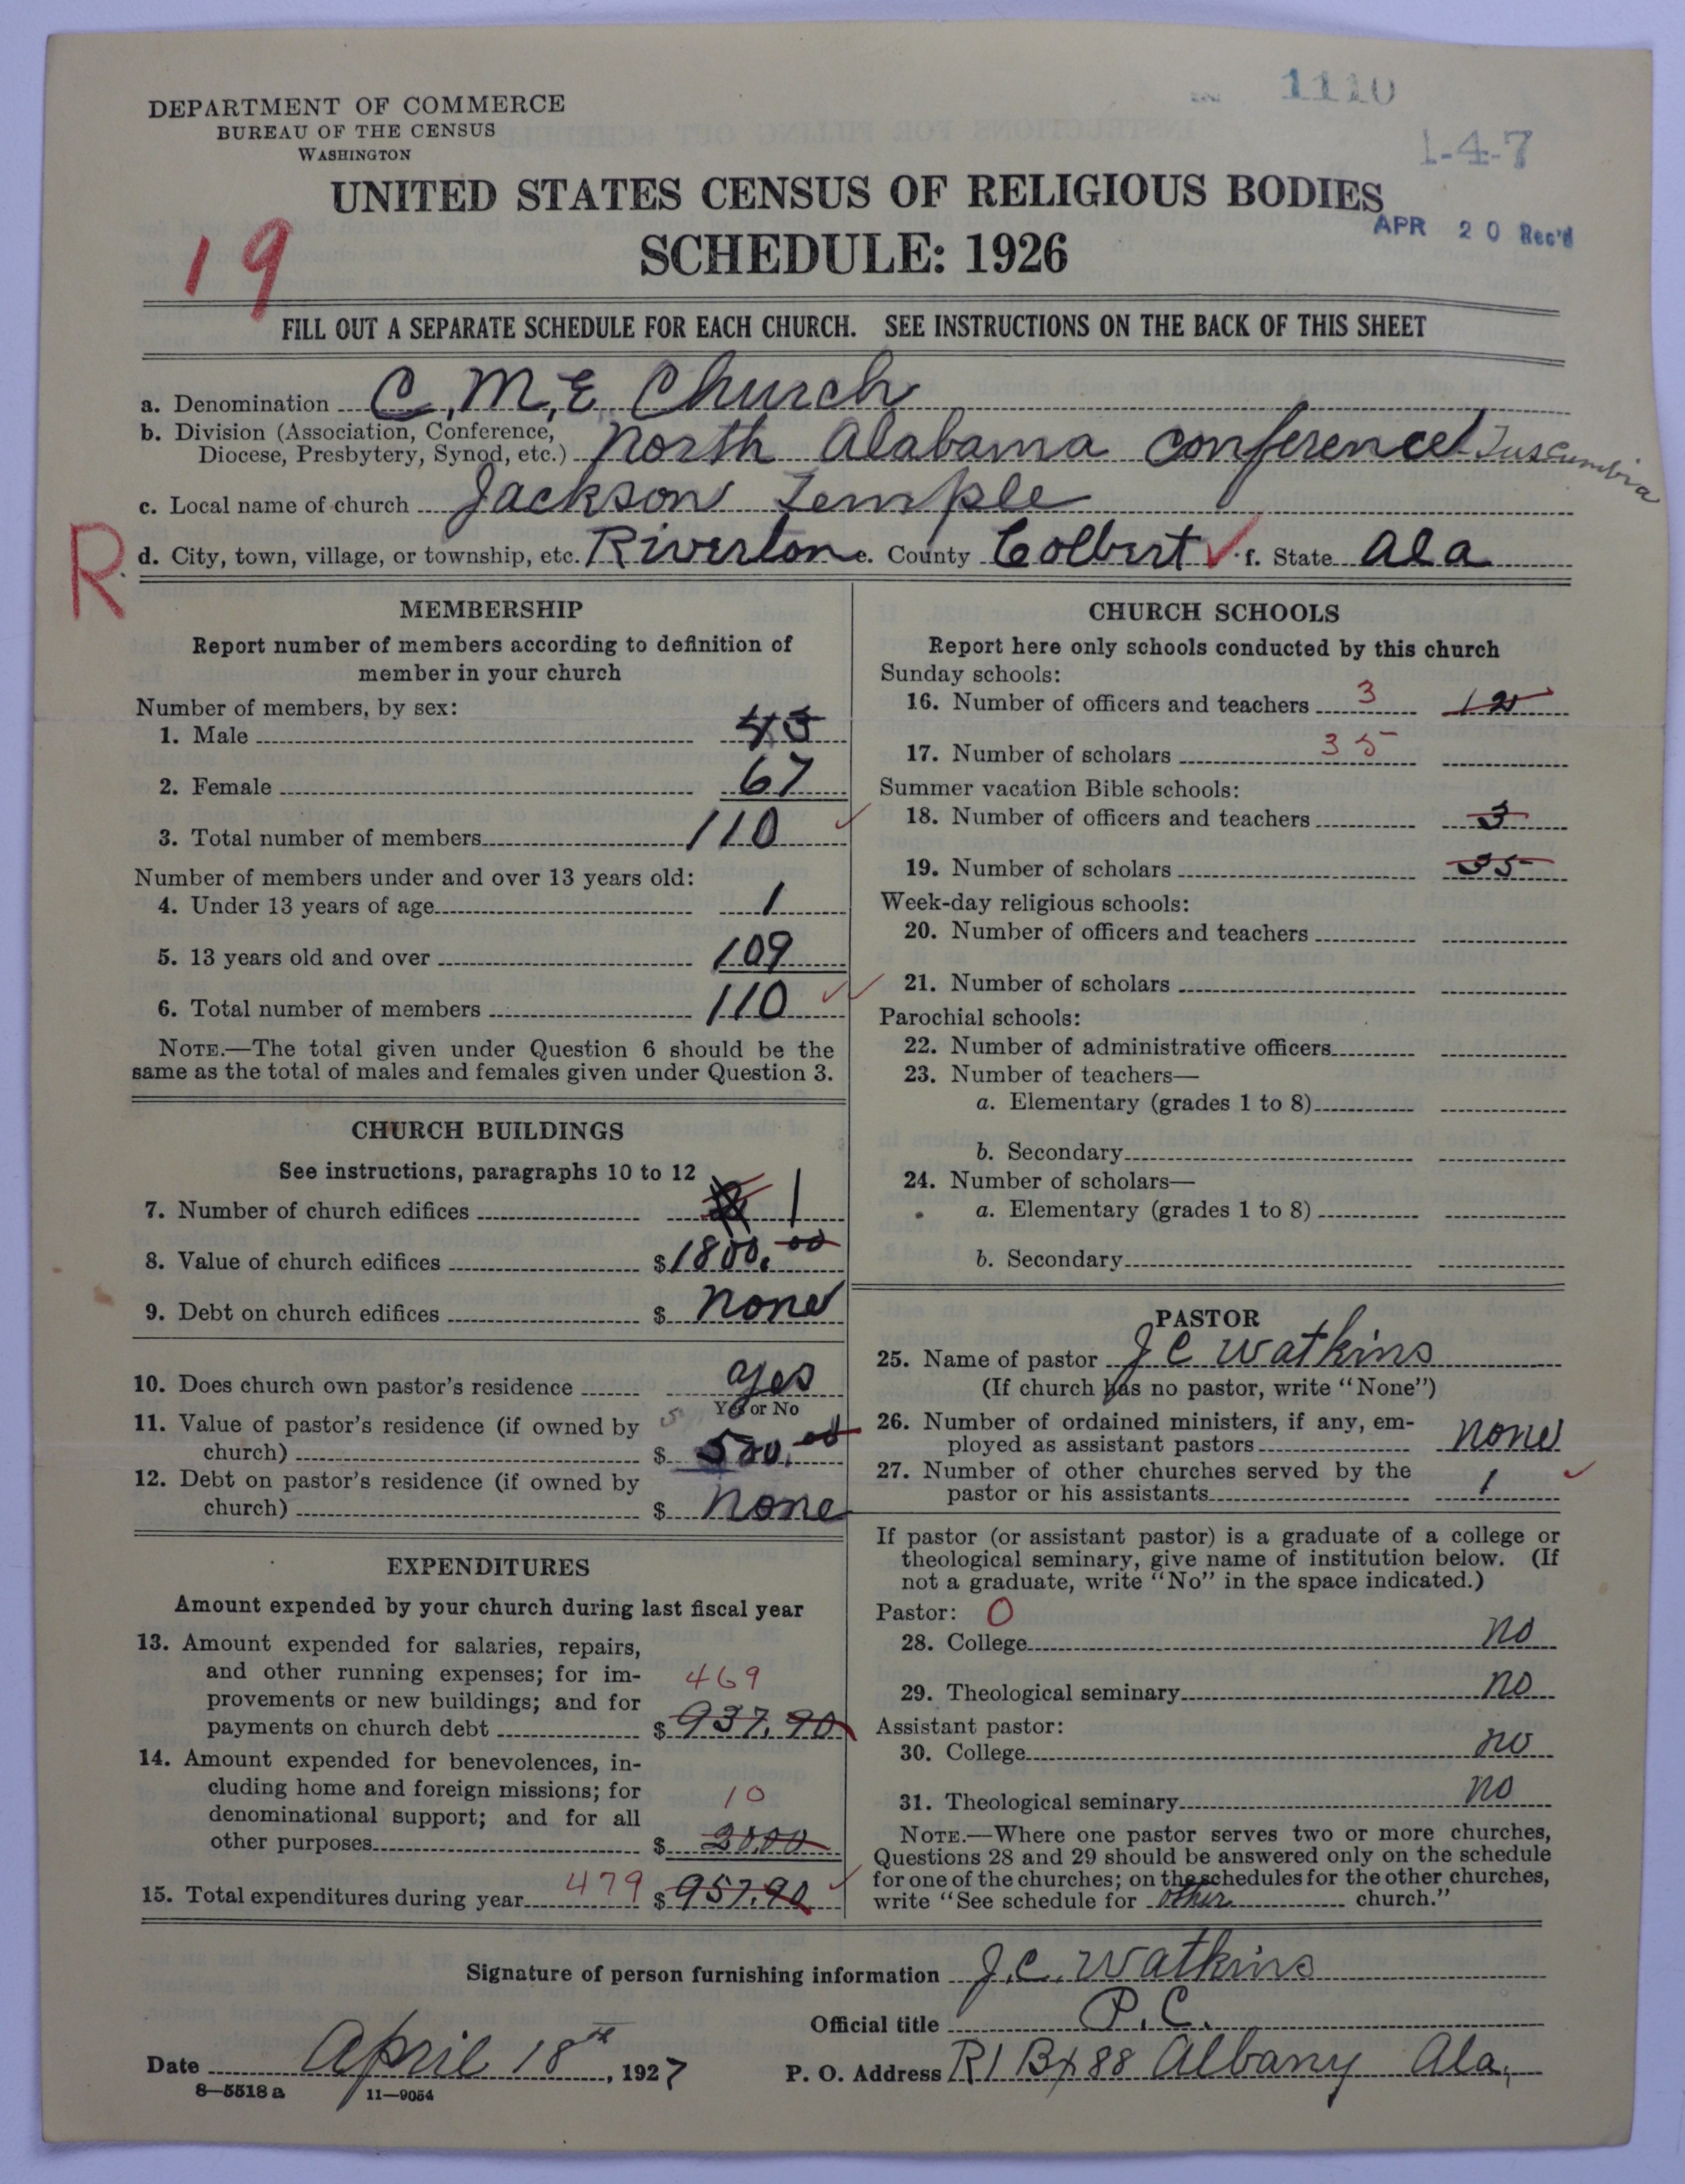 1110
1-4-7
DEPARTMENT OF COMMERCE
BUREAU OF THE CENSUS
WASHINGTON
UNITED STATES CENSUS OF RELIGIOUS BODIES
APR 20 Rec'd
SCHEDULE: 1926
19
FILL OUT A SEPARATE SCHEDULE FOR EACH CHURCH. SEE INSTRUCTIONS ON THE BACK OF THIS SHEET
a. Denomination C. M. E. Church
b. Division (Association, Conference,
Diocese, Presbytery, Synod, etc.) North Alabama Conference Tuscumbia
c. Local name of church Jackson Temple
R
d. City, town, village, or township, etc. Riverton e. County Colbert ✓ f. State Ala
MEMBERSHIP
Report number of members according to definition of
member in your church
Number of members, by sex:
1. Male 43
2. Female 67
3. Total number of members 110 ✓
Number of members under and over 13 years old:
4. Under 13 years of age 1
5. 13 years old and over 109
6. Total number of members 110 ✓✓
NOTE.—The total given under Question 6 should be the
same as the total of males and females given under Question 3.
CHURCH BUILDINGS
See instructions, paragraphs 10 to 12
7. Number of church edifices 1
8. Value of church edifices $1800.00
9. Debt on church edifices $ none
10. Does church own pastor's residence yes
Yes or No
11. Value of pastor's residence (if owned by
church) $ 500.00
12. Debt on pastor's residence (if owned by
church) $ none
EXPENDITURES
Amount expended by your church during last fiscal year
13. Amount expended for salaries, repairs,
and other running expenses; for im-
provements or new buildings; and for
469
payments on church debt $ 937.90
14. Amount expended for benevolences, in-
cluding home and foreign missions; for
denominational support; and for all
10
other purposes $ 20.00
15. Total expenditures during year 479 $ 957.90 ✓
CHURCH SCHOOLS
Report here only schools conducted by this church
Sunday schools:
16. Number of officers and teachers 3 12
17. Number of scholars 35
Summer vacation Bible schools:
18. Number of officers and teachers 3
19. Number of scholars 35
Week-day religious schools:
20. Number of officers and teachers
21. Number of scholars
Parochial schools:
22. Number of administrative officers
23. Number of teachers—
a. Elementary (grades 1 to 8)
b. Secondary
24. Number of scholars—
a. Elementary (grades 1 to 8)
b. Secondary
PASTOR
25. Name of pastor J C Watkins
(If church has no pastor, write "None")
26. Number of ordained ministers, if any, em-
ployed as assistant pastors none
27. Number of other churches served by the
pastor or his assistants 1 ✓
If pastor (or assistant pastor) is a graduate of a college or
theological seminary, give name of institution below. (If
not a graduate, write "No" in the space indicated.)
Pastor: O
28. College no
29. Theological seminary no
Assistant pastor:
30. College no
31. Theological seminary no
NOTE.—Where one pastor serves two or more churches,
Questions 28 and 29 should be answered only on the schedule
for one of the churches; on the schedules for the other churches,
write "See schedule for other church."
Signature of person furnishing information J. C. Watkins
Official title P. C.
Date April 18th, 1927
P. O. Address R1 Bx 88 Albany Ala,
8—5518 a 11—9054